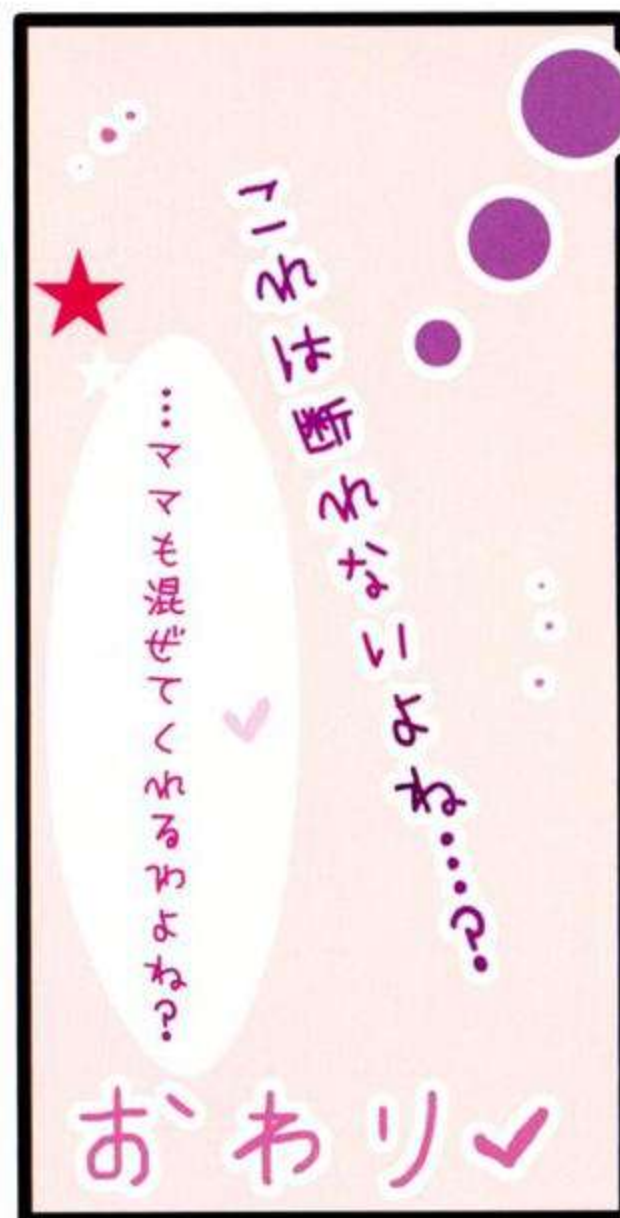 これは断れないよね…?
…ママも混ぜてくれるわよね?
おわり♥